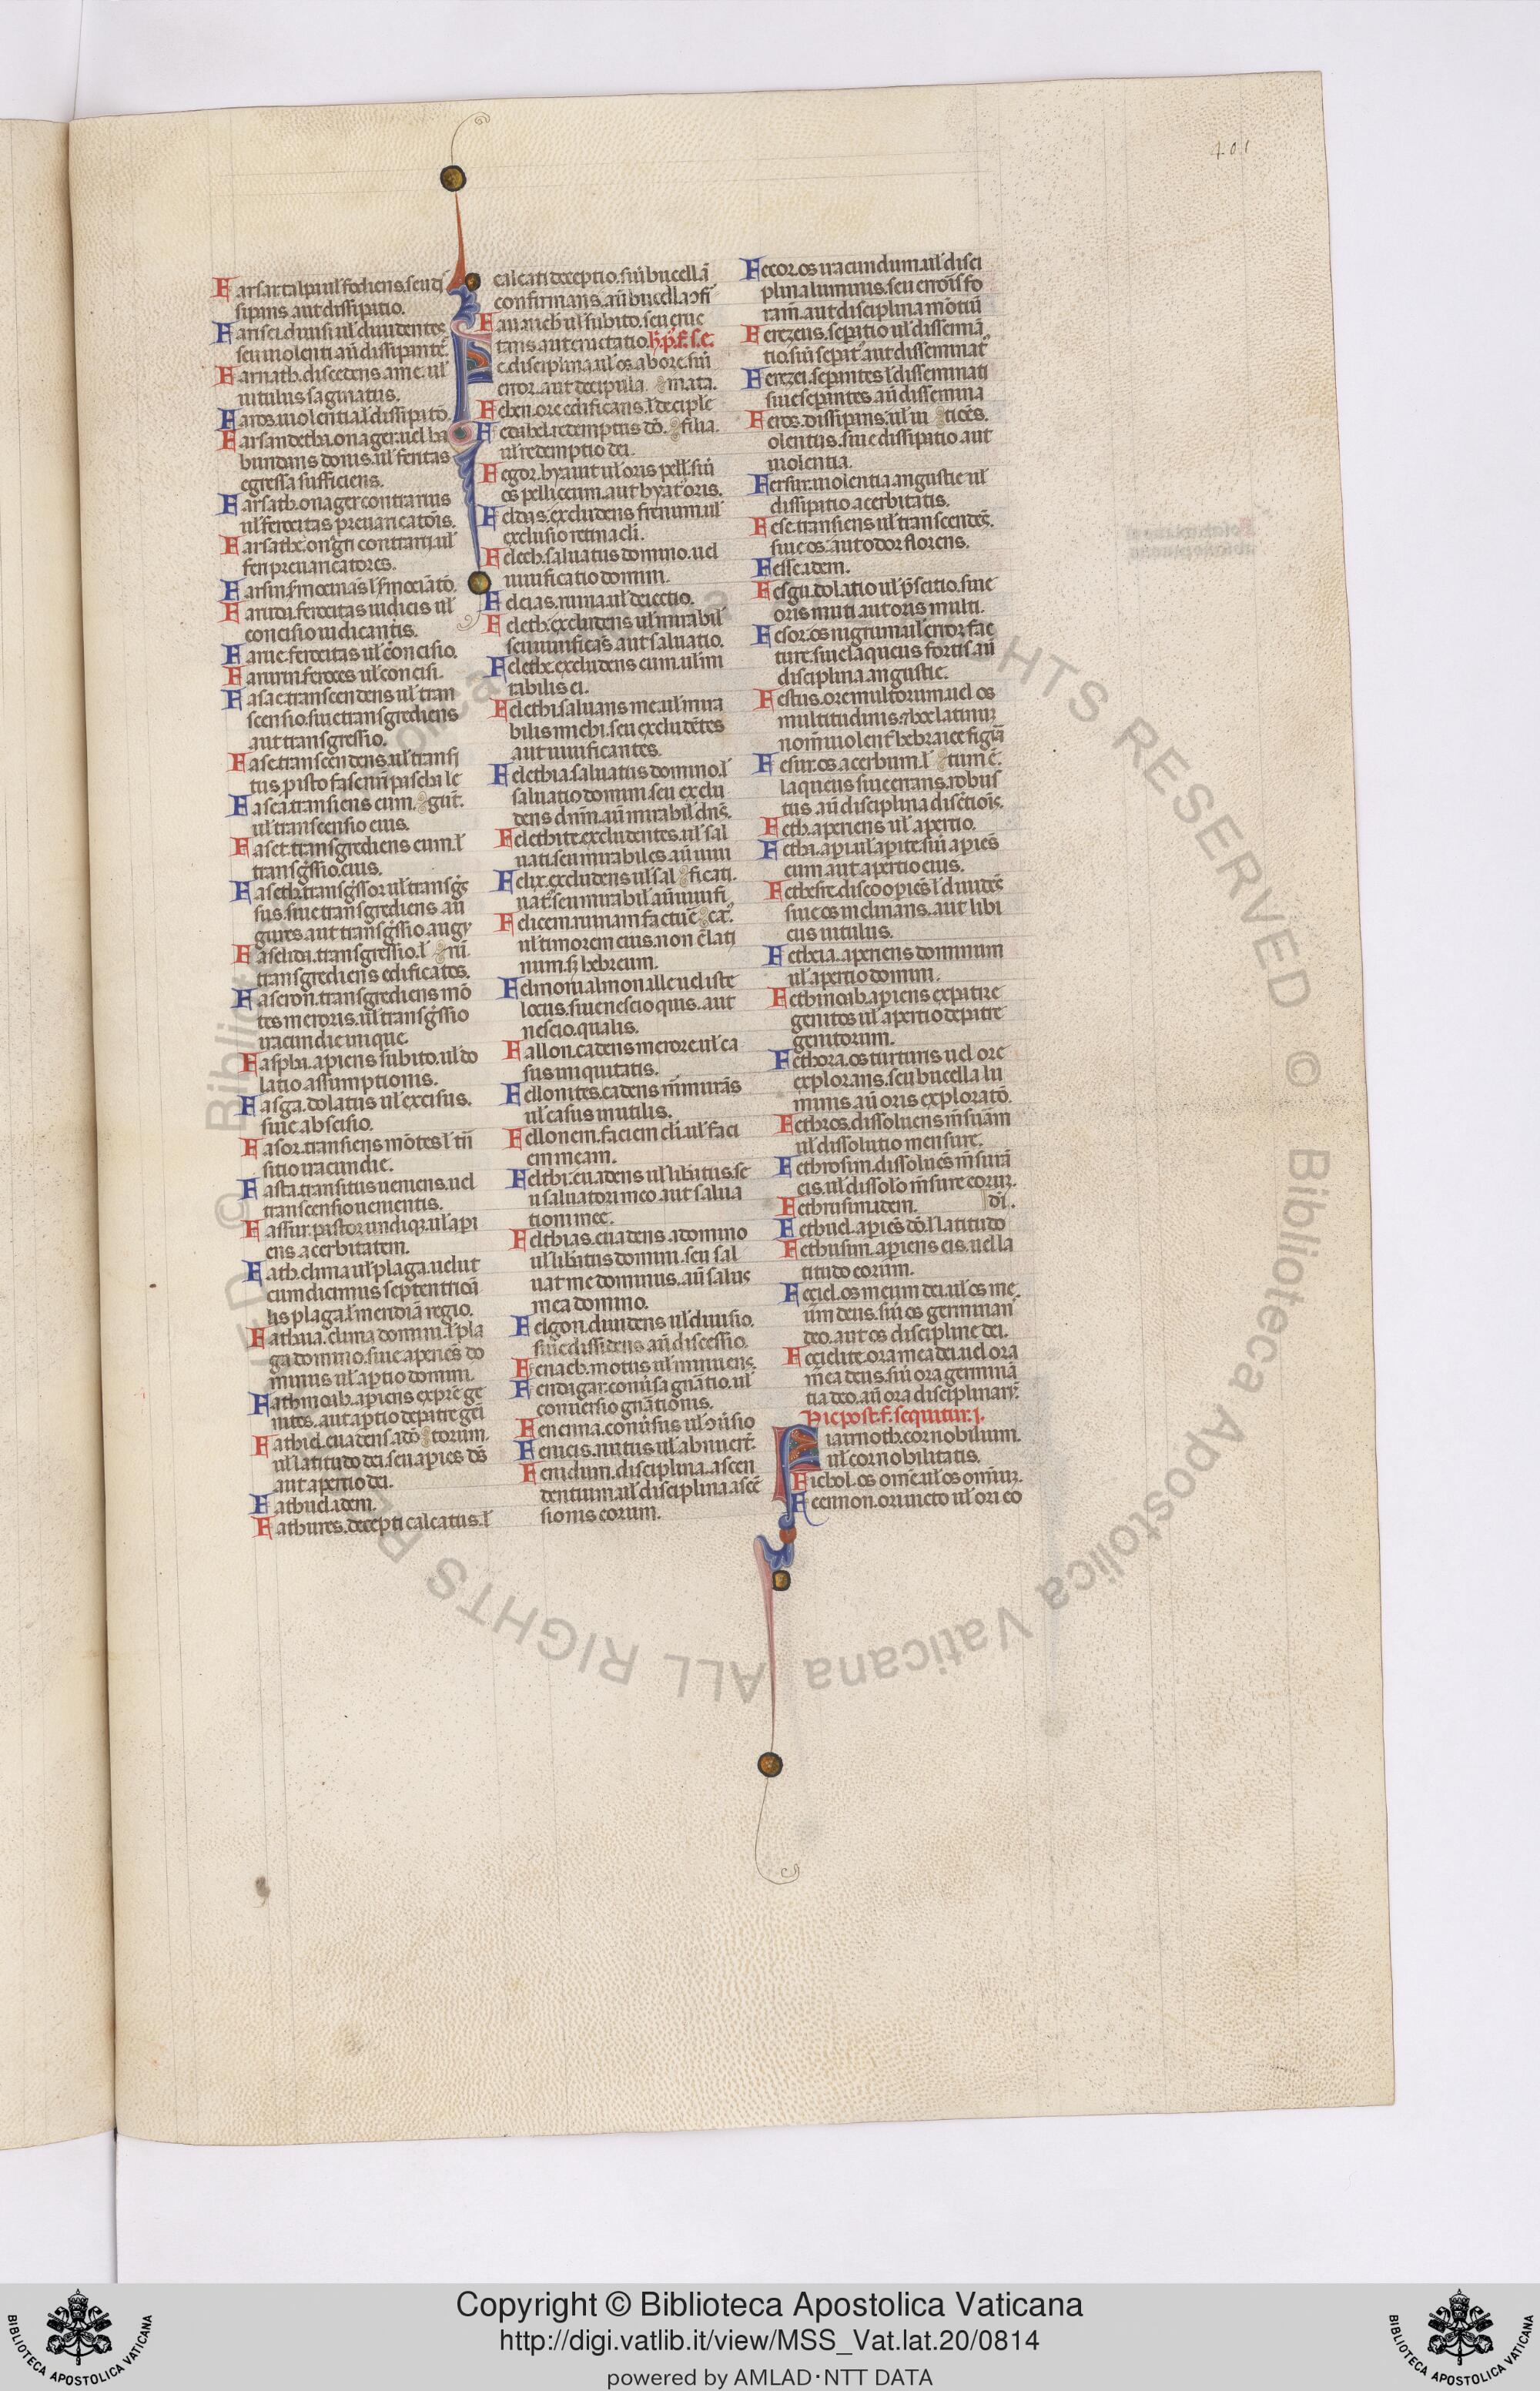 401
Farsar. talpa ul' fodiens. seu di
sipans. aut dissipatio.
Farisei. diuisi ul' diuidentes
seu uiolenti aū dissipantes.
Farnath. discedens a me. ul'
uitulus saginatus.
Faros. uiolentia l' dissipatō.
Farsandetha. onager. uel ha
bundans donis. ul' feritas
egressa sufficiens.
Farsath. onager contrarius
ul' ferocitas preuaricatoris.
fen preuaricatores.
Farudi. ferocitas iudicis ul'
concisio iudicantis.
Farue. ferocitas ul' cōncisio.
Faruim. feroces ul' concisi.
Fasa e. transcendens ul' tran
scensio. siue transgrediens
aut transgressio.
Fase. transcendens. ul' transi
Fasea. transiens eum. gūt.
ul' transcensio eius.
Faset. transgrediens eum. l'
transgssio. eius.
Faseth. transgssor ul' transgre
sus. siue transgrediens aū
Faselida. transgressio. l'
transgrediens edificatos.
Faseron. transgrediens mō
tes meroris. ul' transgssio
iracundie unique.
Fasphu. apiens subito. ul' do
latio. assumptionis.
Fasga. dolatus ul' excisus.
siue abscisio.
Fasor. transiens mōtes l'
sitio iracundie.
Fasta. transitus ueniens. uel
transcensio uenientis.
Fassur. pastor undiq. ul' api
ens acerbitatem.
Fath. clima ul' plaga. uelut
cum dicimus septentrion
lis plaga. l' meridiā regio.
Fathua. clima domini. l' pla
ga domino. siue apenēs do
minus ul' aptio domini.
Fathmoab. apiens expre ge
nites. aut aptio de patre gen
Fathiel. euadens a dō torum.
ul' latitudo dei. seu apiēs dō
aut apertio dei.
Fathuel. idem.
Fathures. decepti calcatus. l'
calcati deceptio. siū bucellā
confirmans. aū bucella ɔfi
Fau. uieb ul' subito. seu eruc
tans. aut eructatio.
Fe. disciplina. ul' os. a bore. siū
error. aut decipula. mata.
Feben. ore edificans. l' deciple
Fedabel. redemptus dō. filia.
ul' redemptio dei.
Fegor. hyauit ul' oris pell. siū
os pelliceum. aut hyat' oris.
Feldas. excludens frenum. ul'
exclusio retinacli.
Felech. saluatus domino. uel
uiuificatio domini.
Feleias. ruina. ul' deiectio.
Feleth. excludens ul' mirabil'
seu uiuificās aut saluatio.
Felethe. excludens eum. ul' mi
rabilis ei.
Felethi. saluans me. ul' mira
bilis michi. seu excludētes
aut uiuificantes.
Felethia. saluatus domino. l'
saluatio domini. seu exclu
dens dnm. aū mirabil' dns.
Felethite. excludentes. ul' sal
uati. seu mirabiles aū uiui
Felix. excludens ul' sal ficati.
uat'. seu mirabil' aū uiuifi
Felicem. ruinam factuē cat'.
ul' timorem eius. non ē lati
num. sȝ hebreum.
Felmoni. almon. alle uel iste
locus. siue nescio quis. aut
nescio. qualis.
Fallon. cadens merore. ul' ca
sus iniquitatis.
Fellonites. cadens m̄murās
ul' casus inutilis.
Fellonem. faciem eli. ul' faci
em meam.
Felthi. euadens ul' libatus. se
u saluatori meo. aut salua
tioni mee.
Felthias. euadens. a domino
ul' libatus domini. seu sal
uat me dominus. aū salus
mea domino.
Felgon. diuidens ul' diuisio.
siue dissidens aū discessio.
Fenach. motus ul' minuens.
conuersio gnationis.
Fenenna. conūsus ul' ɔūsio
Fenicis. nutus ul' abnuerē.
Fenidum. disciplina. ascen
dentium. ul' disciplina. ascē
sionis eorum.
Feeor. os iracundum. ul' disci
plina luminis. seu erroris fo
ram. aut disciplina motiū
Ferezeus. sepatio ul' dissemia
tio. siū sepat' aut disseminat'
Ferezei. sepantes l' disseminati
siue sepantes. aū dissemina
Feros. dissipans. ul' ui tiōes.
olentus. siue dissipatio aut
uiolentia.
Fersur. uiolentia angustie ul'
dissipatio acerbitatis.
Fese. transiens ul' transcendes.
siue os. aut odor florens.
Fesse. idem.
Fesga. dolatio ul' pscitio. siue
oris muti aut oris multi.
Fesor. os nigrum. ul' error fac
ture. siue laqueus fortis. aū
disciplina. angustie.
Festus. ore multorum. uel os
multitudinis. hoc latinū
Fesur. os. acerbum. l' tum ē.
laqueus siue errans. robus
tus aū disciplina disctiois.
Feth. aperiens ul' apertio.
Fetha. api. ul' apite. siū apiēs
eum aut apertio eius.
Fethefre. discoopiēs l' diuidēs
siue os inclinans. aut libi
eus uitulus.
Fetheia. aperiens dominum
ul' apertio domini.
Fethmoab. apiens ex patre
genitos ul' apertio de patre
genitorum.
Fethora. os turturis uel ore
explorans. seu bucella lu
minis. aū oris exploratō.
Fethros. dissoluens m̄suram
ul' dissolutio mensure.
Fethrosim. dissoluēs m̄surā
eis. ul' dissolō m̄sure eorum.
Fethrusim. idem. dī.
Fethuel. apiēs dō. l' latitudo
Fethusim. apiens eis. uel la
titudo eorum.
Feciel. os meum dei. ul' os me
ūm deus. siū os germinan
deo. aut os discipline dei.
Fecielite. ora mea dei. uel ora
m̄ea deus. siū ora germinā
tia deo. aū ora disciplinar.
Hic post. f. sequitur. i.
Fiairoth. cor nobilium.
ul' cor nobilitatis.
Fichol. os om̄e. ul' os om̄iū.
Ficennon. ori iuncto ul' ori co
Copyright © Biblioteca Apostolica Vaticana
http://digi.vatlib.it/view/MSS_Vat.lat.20/0814
powered by AMLAD·NTT DATA
BIBLIOTECA APOSTOLICA VATICANA
BIBLIOTECA APOSTOLICA VATICANA
© Biblioteca Apostolica Vaticana ALL RIGHTS RESERVED